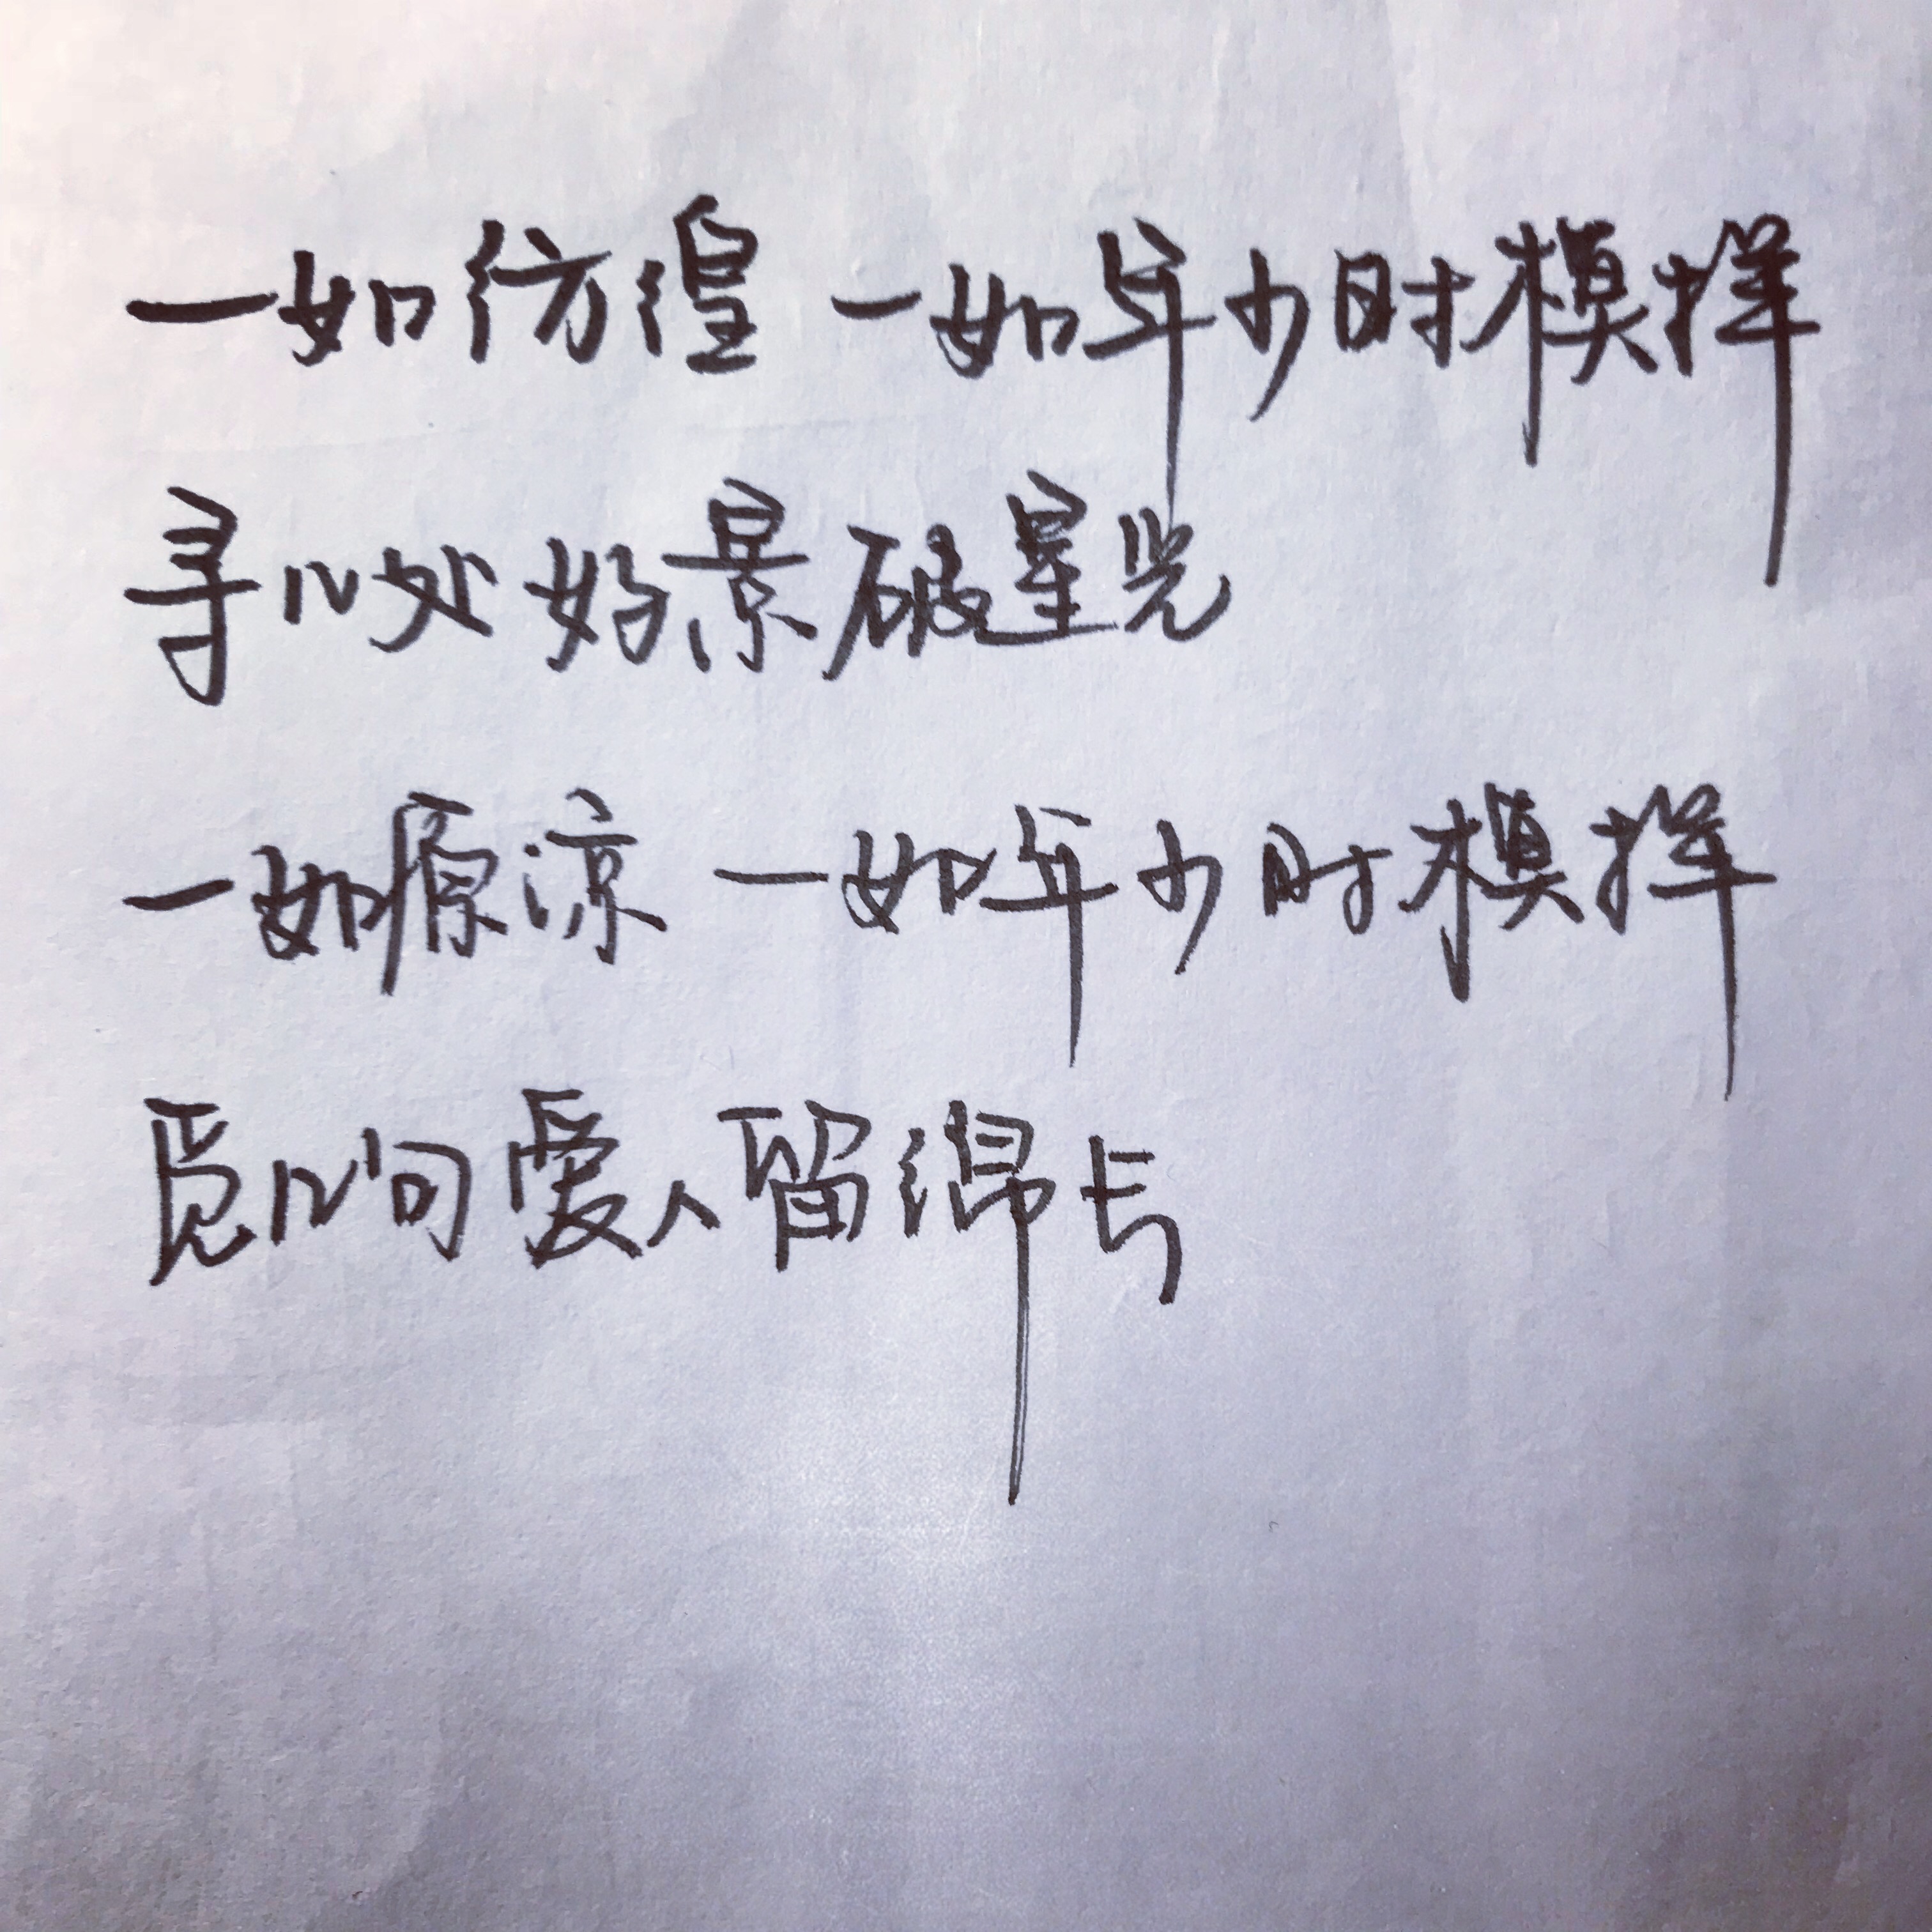 一如彷徨 一如年少时模样
寻几处好景破星光
一如原凉 一如年少时模样
觅几句爱人留绵长